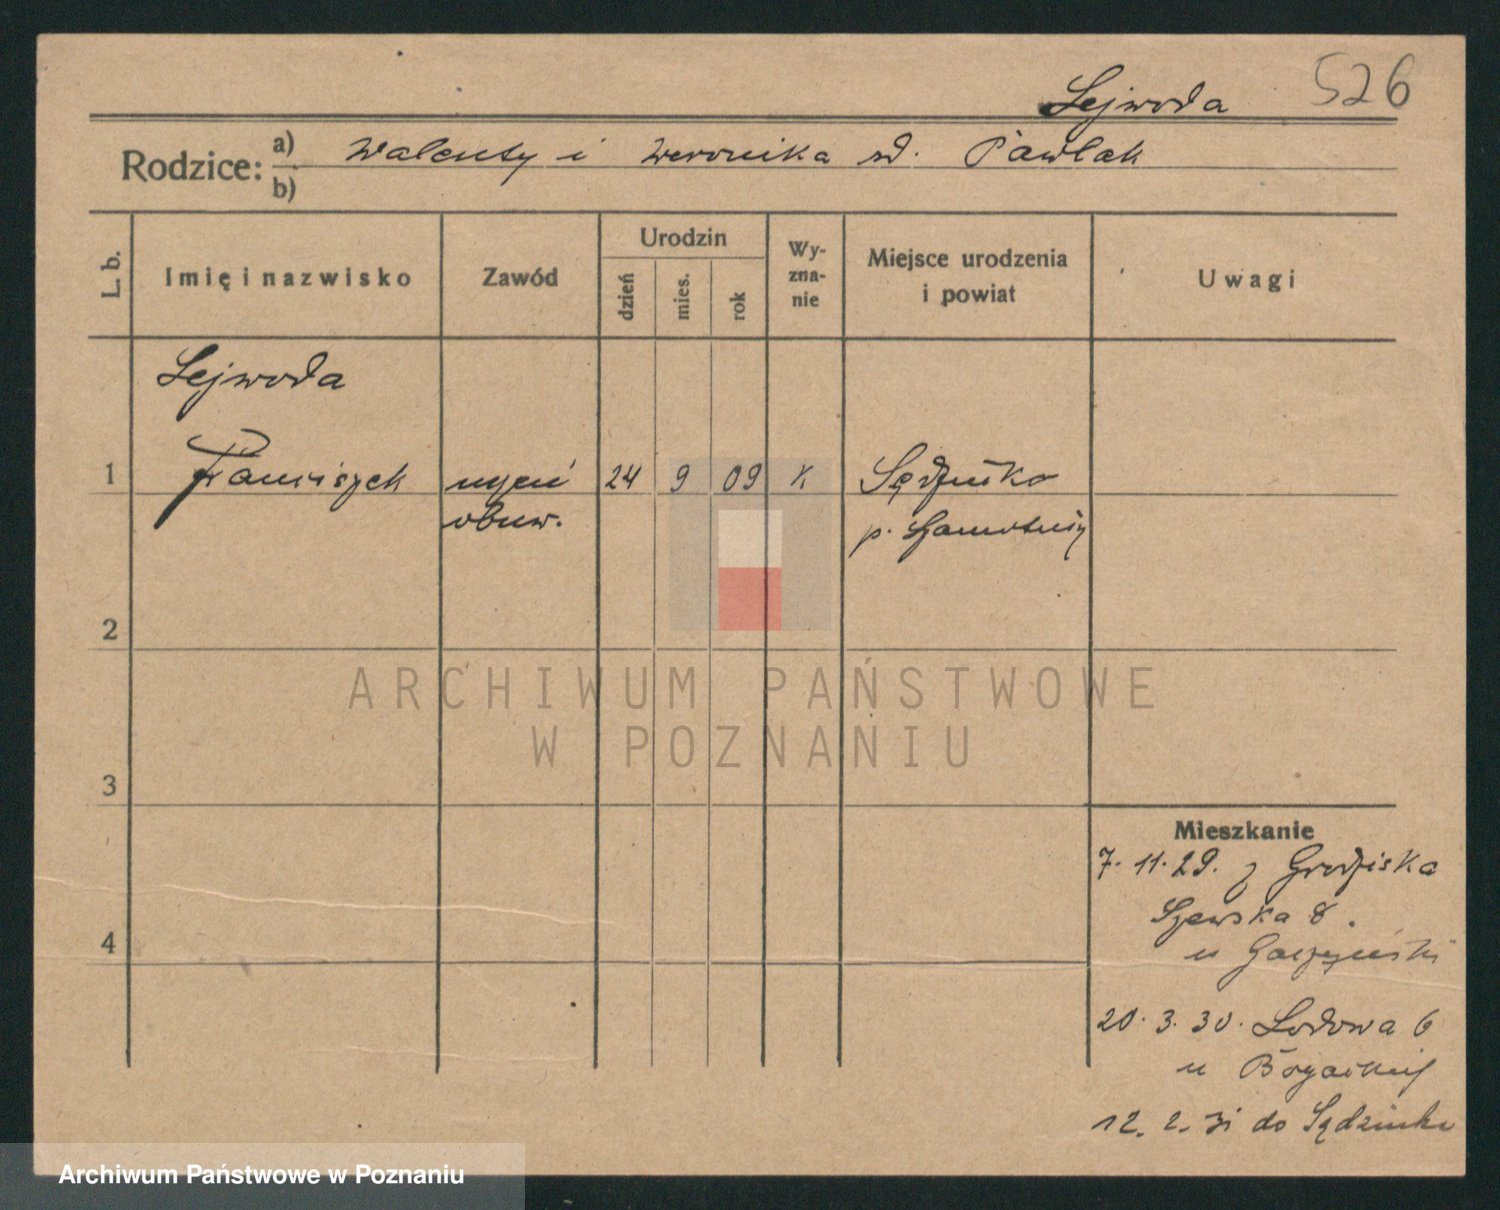 526
Lejwoda
Rodzice: a) Walenty i Weronika zd. Pawlak
b)
L. b.
Imię i nazwisko
Zawód
Urodzin
dzień
mies.
rok
Wy-
zna-
nie
Miejsce urodzenia
i powiat
Uwagi
Lejwoda
1 Franciszek uczeń 24 9 09 K Sędzinko
obuw. p. Szamotuły
2
ARCHIWUM PAŃSTWOWE
W POZNANIU
3
Mieszkanie
7. 11. 29. z Grodziska
Szewska 8.
4
u Gaczyński
20. 3. 30. Lodowa 6
u
12. 2. 31 do Sędzinka
Archiwum Państwowe w Poznaniu